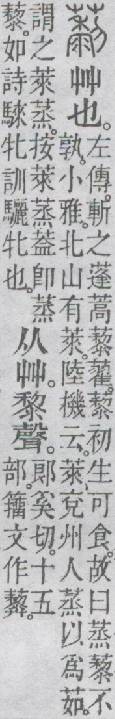 藜艸也。左傳。斬之蓬蒿藜藋。藜初生可食。故曰蒸藜不
孰。小雅。北山有萊。陸機云。萊、兗州人蒸以爲茹。
謂之萊蒸。按萊蒸葢卽蒸
藜。如詩騋牝訓驪牝也。
从艸。黎聲。郎奚切。十五
部。籒文作